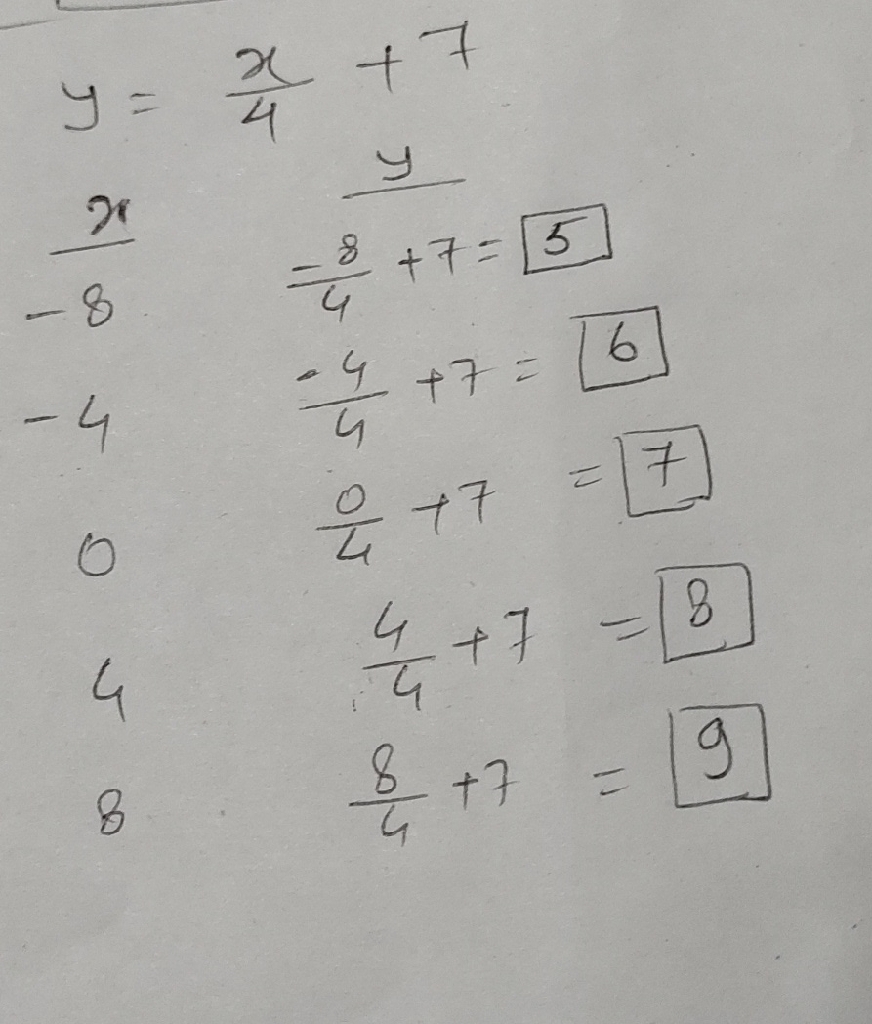 y = x/4 + 7
x y
-8 -8/4 + 7 = 5
-4 -4/4 + 7 = 6
0 0/4 + 7 = 7
4 4/4 + 7 = 8
8 8/4 + 7 = 9